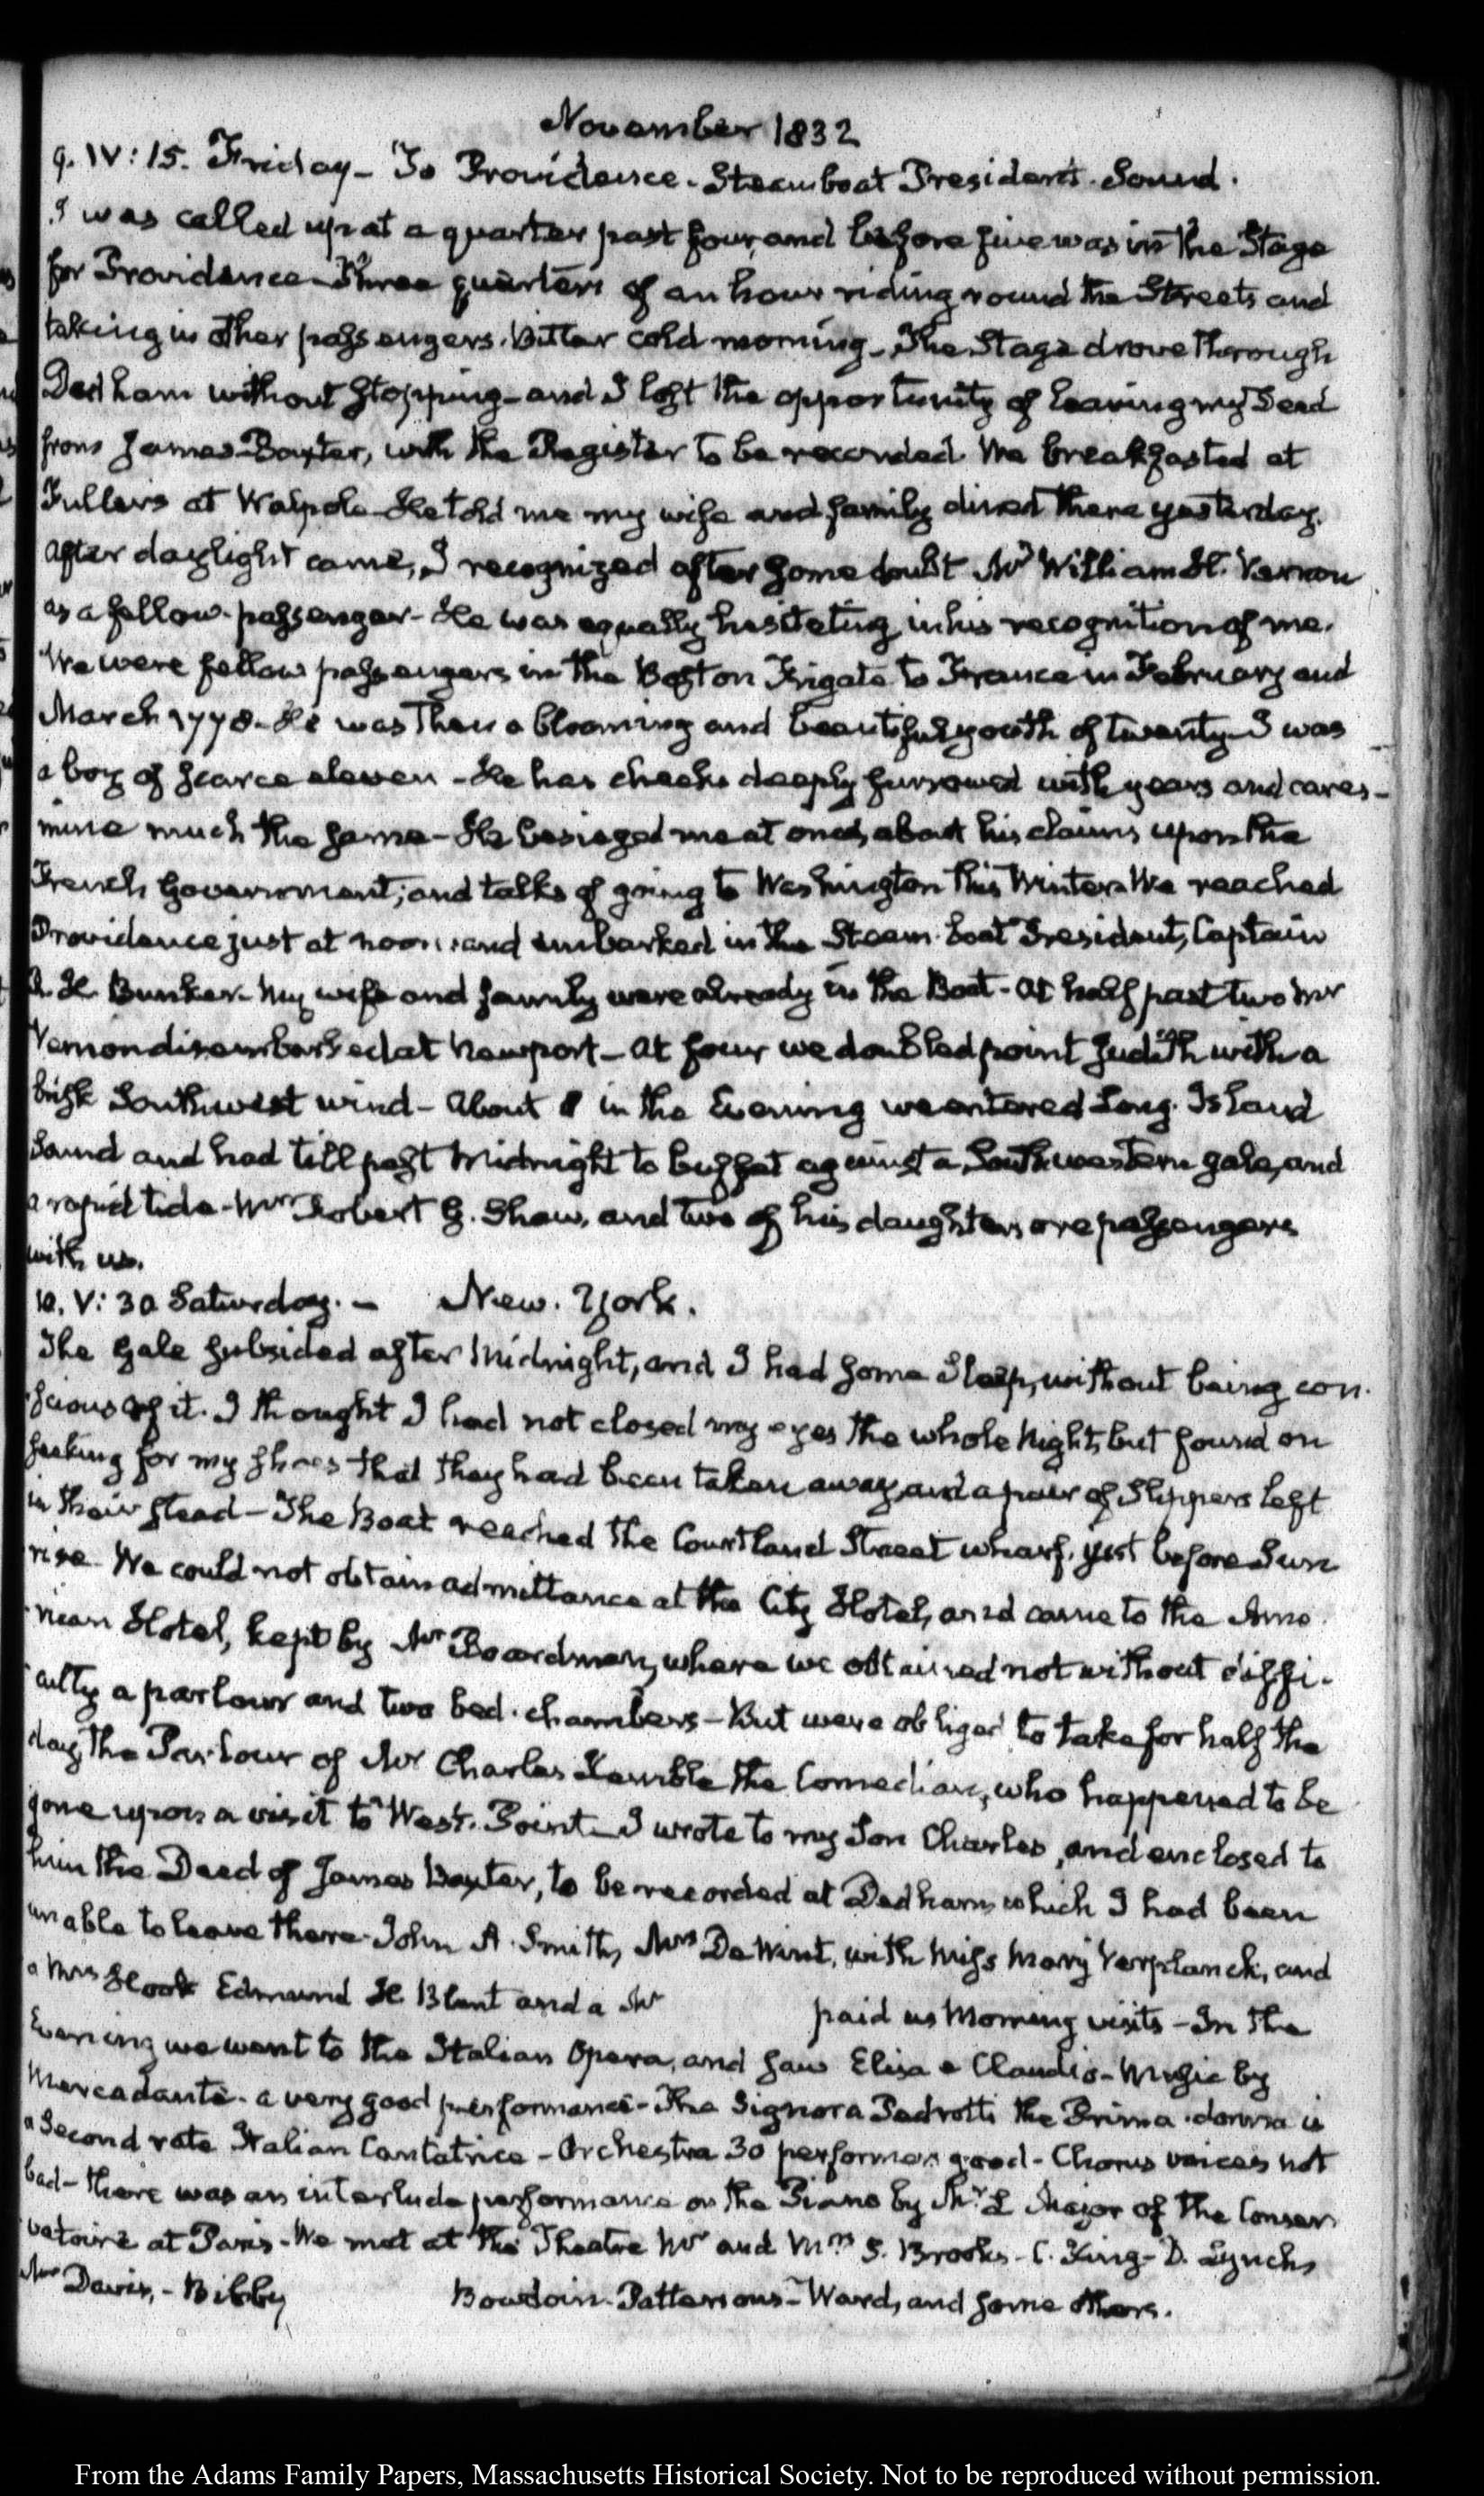 November 1832
9. IV: 15. Friday - To Providence. Steamboat President. Sound.
I was called up at a quarter past four, and before five was in the Stage
for Providence - Three quarters of an hour riding round the Streets and
taking in other passengers. Bitter cold morning - The Stage drove through
Dedham without stopping - and I lost the opportunity of leaving my Deed
from James Baxter, with the Register to be recorded. We breakfasted at
Fullers at Walpole - He told me my wife and family dined there yesterday.
After daylight came, I recognized after some doubt Mr. William H. Vernon
as a fellow-passenger - He was equally hesitating in his recognition of me.
We were fellow passengers in the Boston Frigate to France in February and
March 1778 - He was then a blooming and beautiful youth of twenty - I was
a boy of scarce eleven - He has cheeks deeply furrowed with years and cares -
mine much the same - He besieged me at once, about his claims upon the
French Government; and talks of going to Washington this Winter. We reached
Providence just at noon, and embarked in the Steam-boat President, Captain
R. H. Bunker. My wife and family were already in the Boat - At half past two Mr
Vernon disembarked at Newport - At four we doubled point Judith with a
brisk Southwest wind - About 8 in the Evening we entered Long-Island
Sound and had till past Midnight to buffet against a Southwestern gale, and
a rapid tide - Mr Robert G. Shaw, and two of his daughters are passengers
with us.
10. V: 30 Saturday. - New-York.
The gale subsided after Midnight, and I had some Sleep, without being con-
scious of it. I thought I had not closed my eyes the whole Night, but found on
seeking for my shoes that they had been taken away, and a pair of Slippers left
in their stead - The Boat reached the Courtland Street wharf, just before Sun
rise. We could not obtain admittance at the City Hotel, and came to the Ame-
rican Hotel, kept by Mr Boardman, where we obtained not without diffi-
culty a parlour and two bed-chambers - But were obliged to take for half the
day, the Parlour of Mr Charles Kemble the Comedian, who happened to be
gone upon a visit to West-Point - I wrote to my Son Charles, and enclosed to
him the Deed of James Baxter, to be recorded at Dedham which I had been
unable to leave there. John A. Smith, Mrs De Wint, with Miss Mary Verplanck, and
a Mrs Edmund H. Blunt and a Mr paid us Morning visits - In the
Evening we went to the Italian Opera, and saw Elisa e Claudio - Music by
Mercadante - a very good performance - The Signora Pedrotti the Prima-donna is
a Second rate Italian Cantatrice - Orchestra 30 performers good - Chorus voices not
bad - there was an interlude performance on the Piano by Mr. L Major of the Conser-
vatoire at Paris - We met at the Theatre Mr and Mrs S. Brooks - C. King - D. Lynch,
Mr Davis, - Bibby Bowdoin - Pattersons - Ward, and some others.
From the Adams Family Papers, Massachusetts Historical Society. Not to be reproduced without permission.